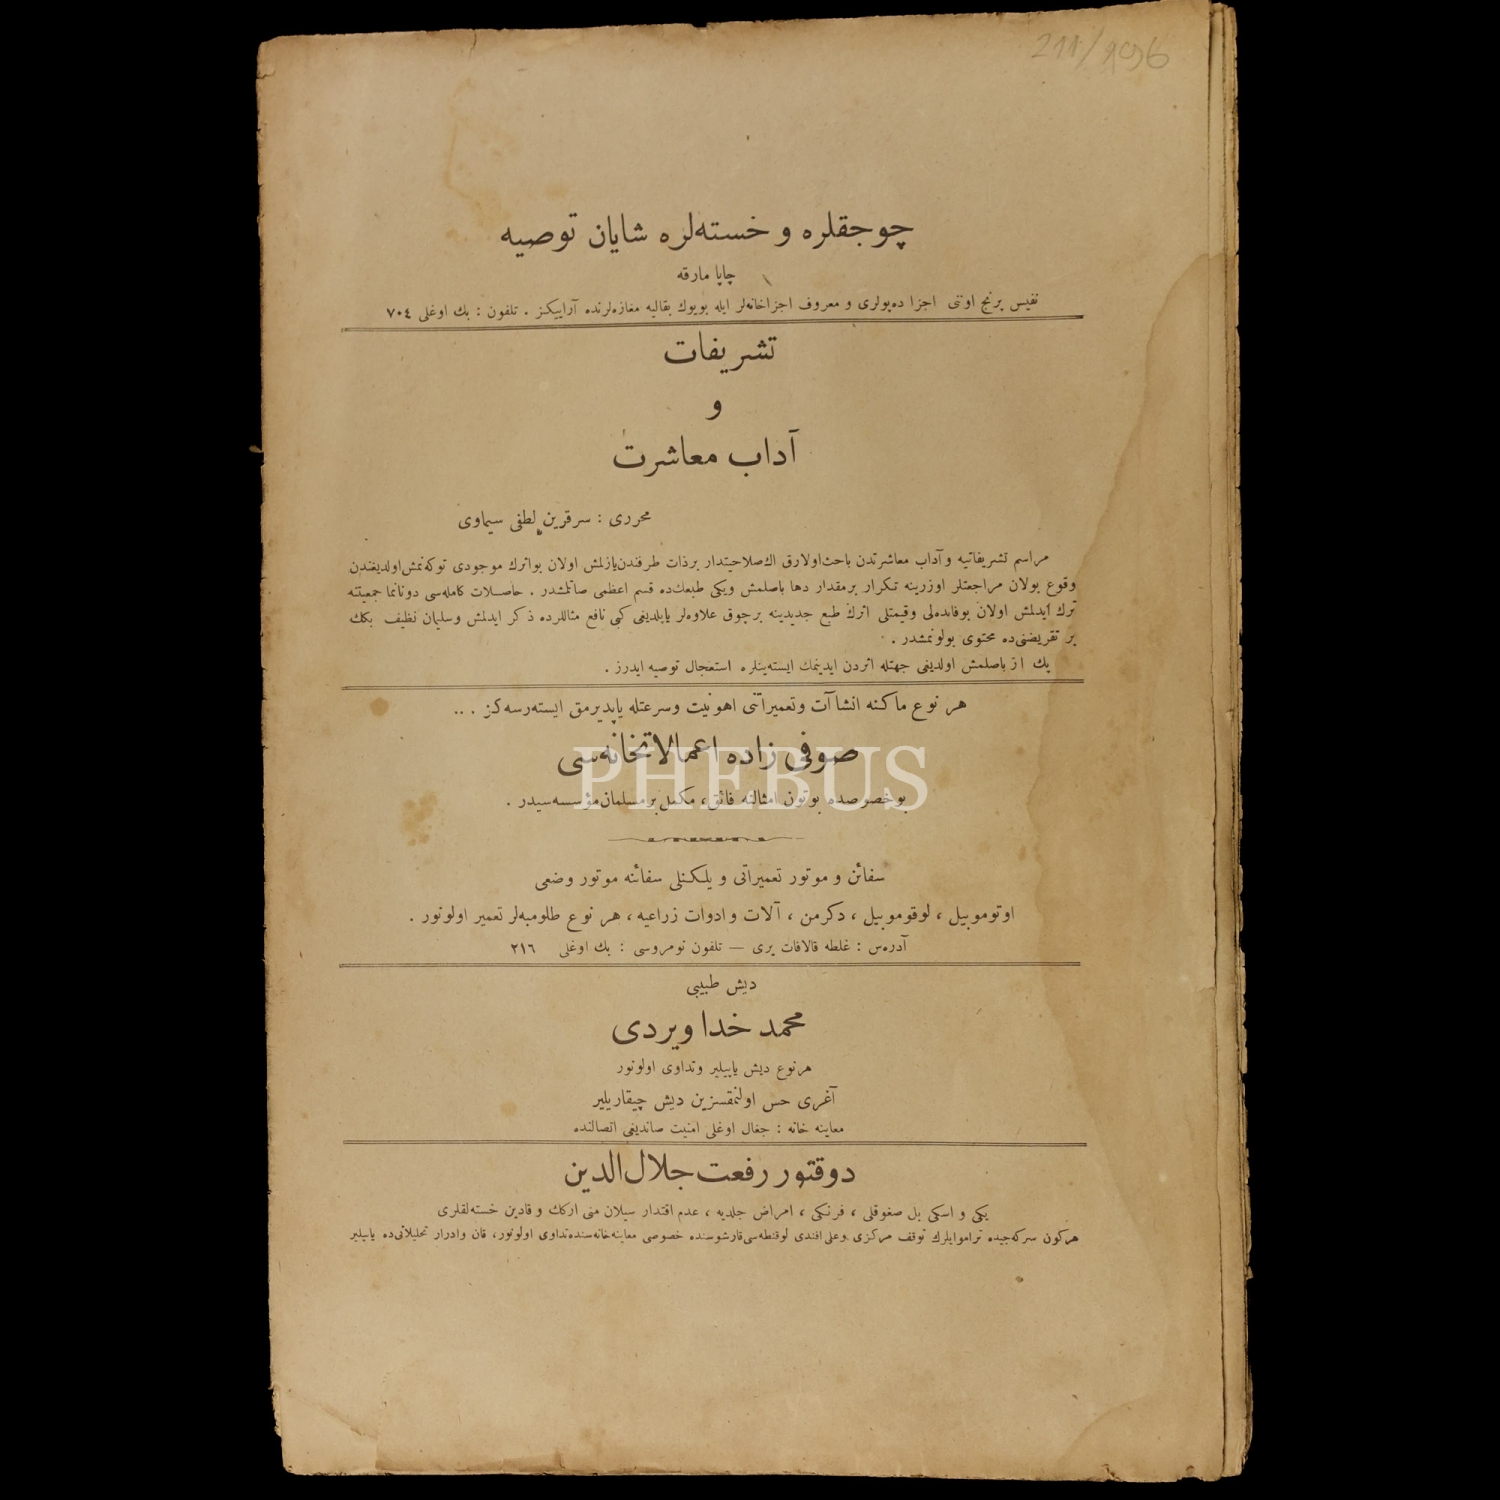 211/1996
چوجقلره و خسته‌لره شایان توصیه
چاپا مارقه
نفیس برنج اوننی اجزا ده‌پولری و معروف اجزاخانه‌لر ایله بویوك بقالیه مغازه‌لرنده آرایيكز . تلفون : بك اوغلی ٧٠٤
تشریفات
و
آداب معاشرت
محرری : سرقرین لطفی سیماوی
مراسم تشریفاتیه و آداب معاشرتدن باحث‌اولارق اك‌صلاحیتدار برذات طرفندن‌یازلمش اولان بواثرك موجودی توكه‌نمش‌اولدیغندن
وقوع بولان مراجعتلر اوزرینه تكرار برمقدار دها باصلمش ویكی طبعك‌ده قسم اعظمی صاتلمشدر . حاصلات كامله‌سی دونانما جمعیتنه
ترك ایدلمش اولان بوفائده‌لی وقیمتلی اثرك طبع جدیدینه برچوق علاوه‌لر یاپلدیغی كبی نافع مثاللرده ذكر ایدلمش وسلیمان نظیف بكك
بر تقریضنی‌ده محتوی بولونمشدر .
پك از باصلمش اولدیغی جهتله اثردن ایدینمك ایسته‌ینلره استعجال توصیه ایدرز .
هر نوع ماكنه انشاآت وتعمیراتنی اهونیت وسرعتله یاپدیرمق ایسته‌رسه‌كز . ..
صوفی زاده اعمالاتخانه‌سی
PHEBUS
بوخصوصده بوتون امثالنه فائق، مكمل برمسلمان‌مؤسسه‌سیدر .
سفائن و موتور تعمیراتی و یلكنلی سفائنه موتور وضعی
اوتوموبیل ، لوقوموبیل ، دكرمن ، آلات وادوات زراعیه ، هر نوع طلومبه‌لر تعمیر اولونور .
آدره‌س : غلطه قالافات یری — تلفون نومروسی : بك اوغلی ٢١٦
دیش طبیبی
محمد خدا ویردی
هرنوع دیش یاپیلیر وتداوی اولونور
آغری حس اولنمقسزین دیش چیقاریلیر
معاینه خانه : جغال اوغلی امنیت صاندیغی اتصالنده
دوقتور رفعت جلال‌الدین
یكی و اسكی بل صغوقلی ، فرنكی ، امراض جلدیه ، عدم اقتدار سیلان منی اركك وقادین خسته‌لقلری
هركون سركه‌جیده تراموایلرك توقف مركزی وعلی افندی لوقنطه‌سی‌قارشوسنده خصوصی معاینه‌خانه‌سنده‌تداوی اولونور، قان وادرار تحلیلاتی‌ده یاپیلیر